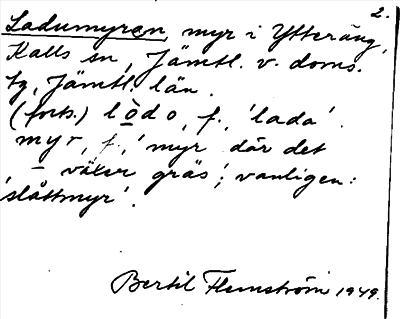 2.
Ladumyren, myr i Ytteräng,
Kalls sn, Jämtl. v. doms.
tg, Jämtl. län.
(forts.) lòdo, f., 'lada'.
myr, f., 'myr där det
– växer gräs'; vanligen:
'slåttmyr'.
Bertil Flemström 1949.